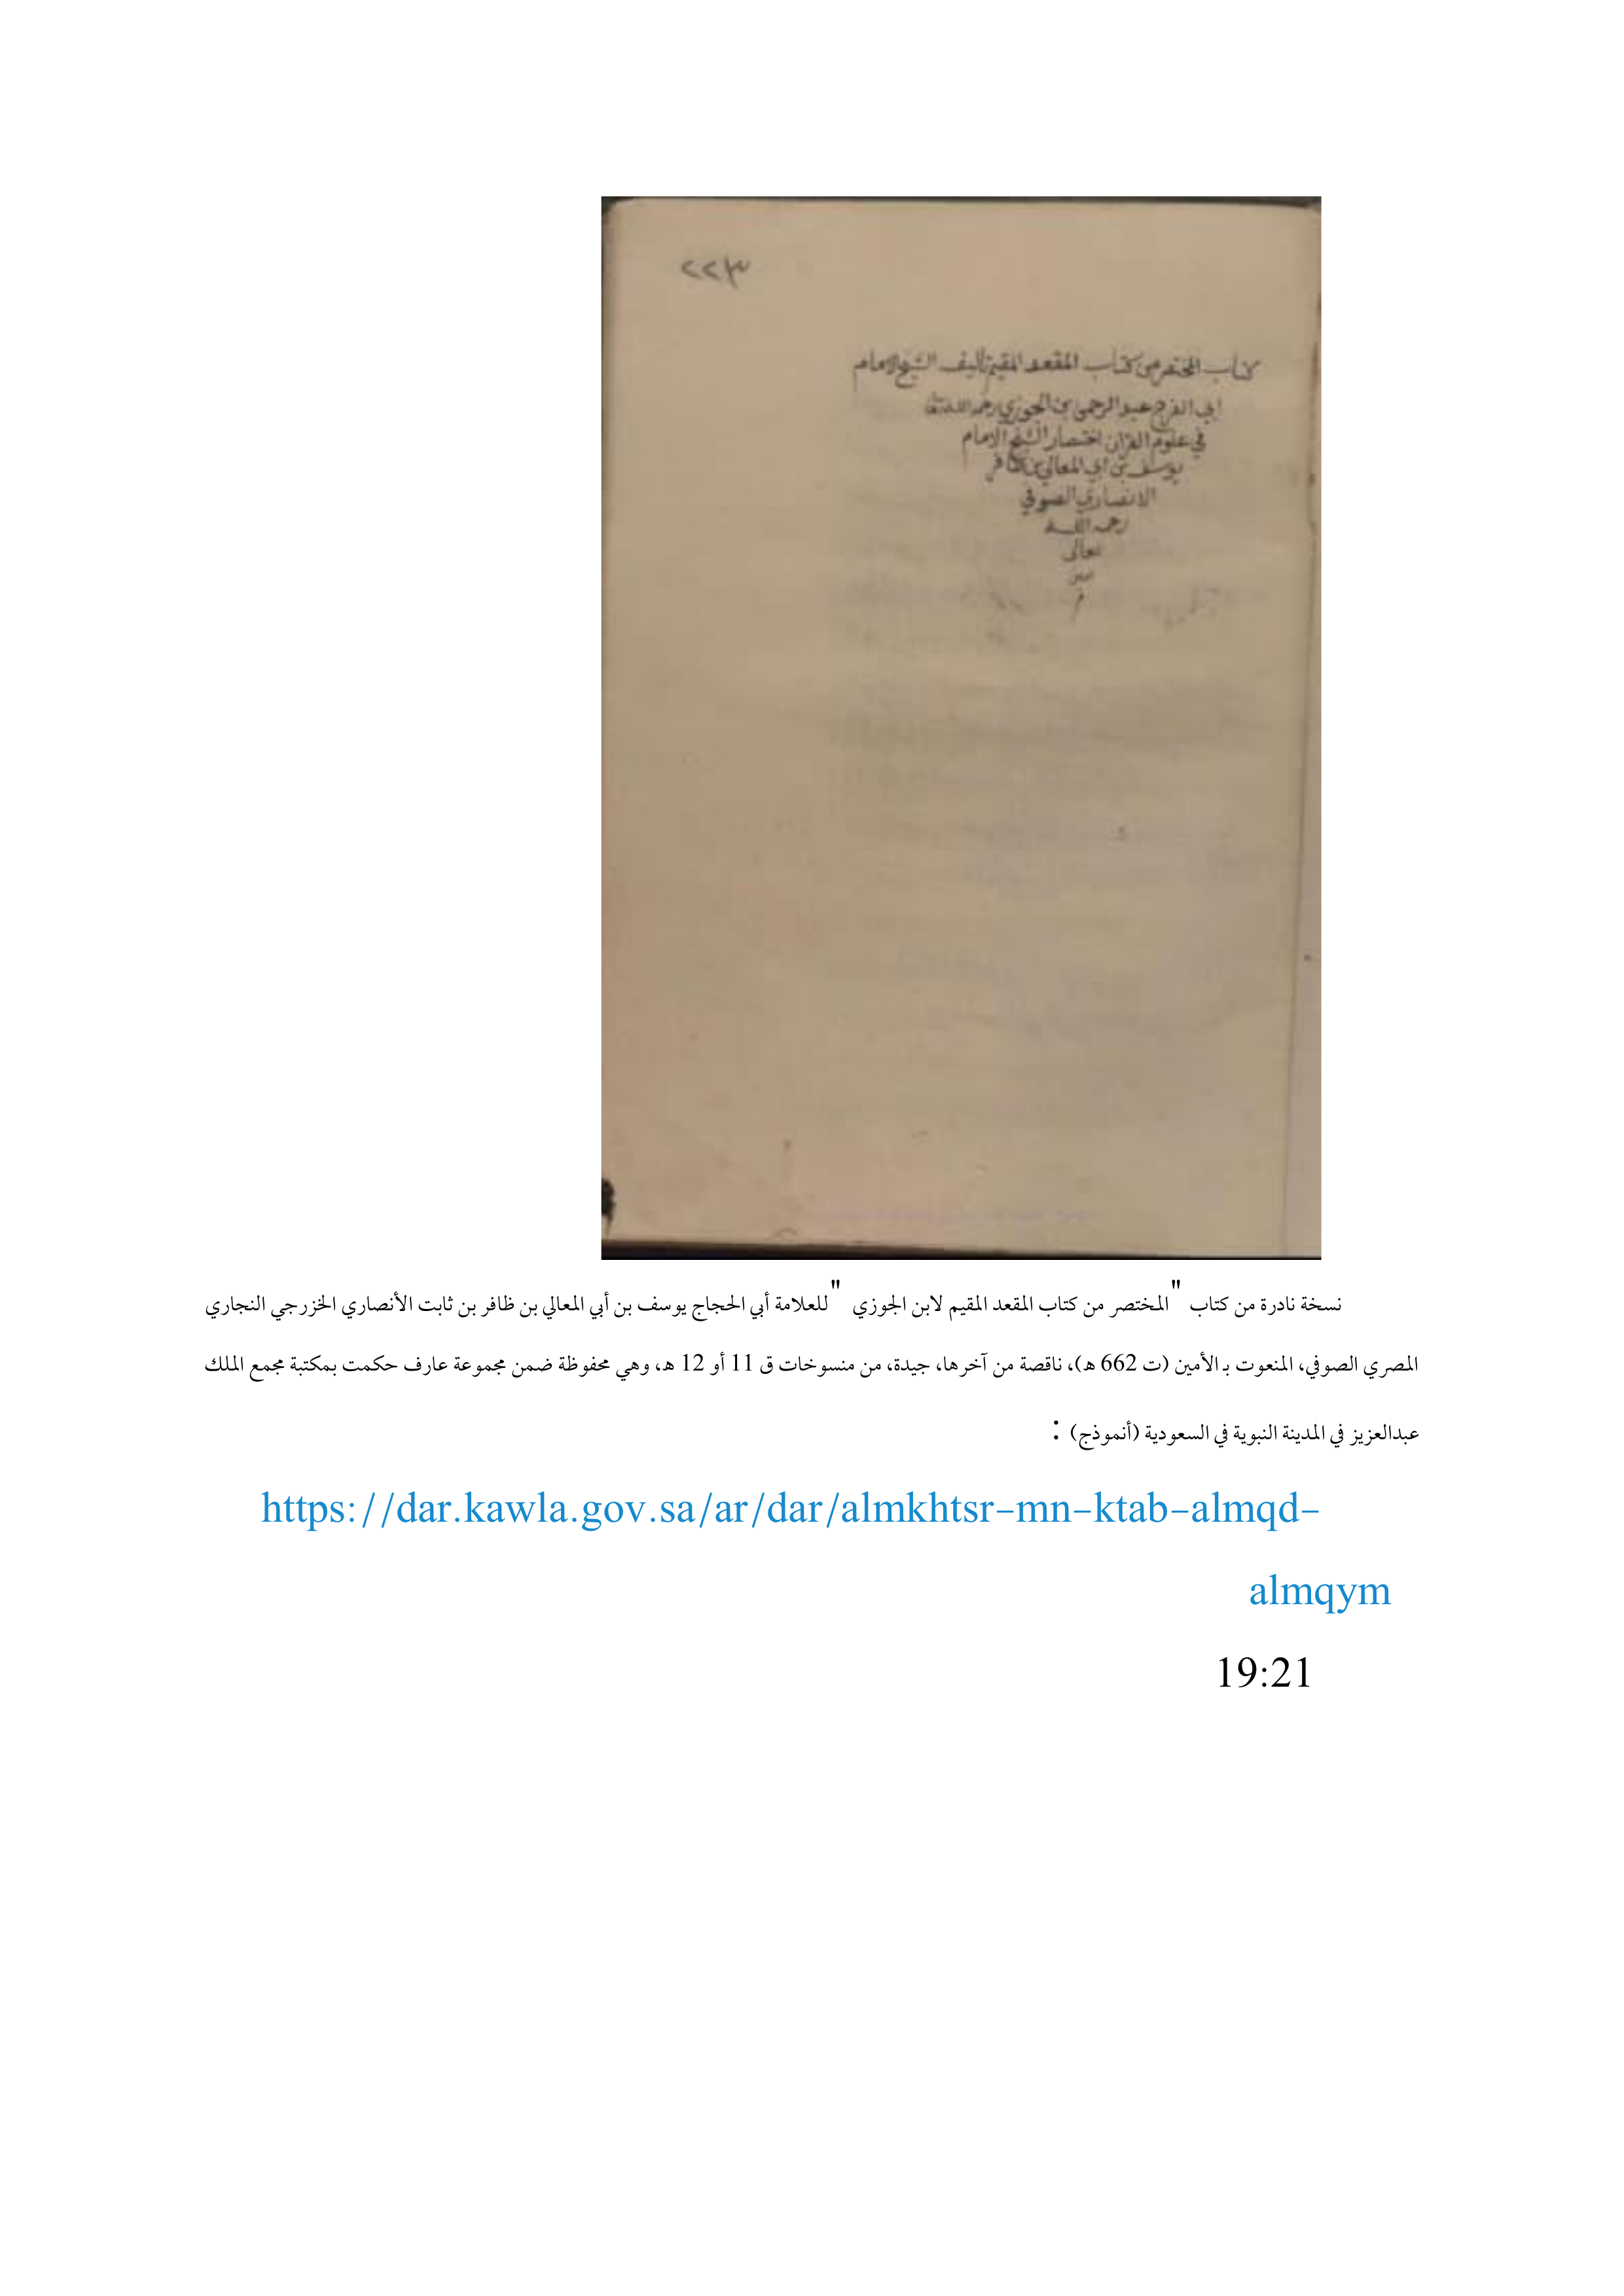 ٢٢٣
كتاب المختصر من كتاب المقعد المقيم تأليف الشيخ الامام
ابي الفرج عبد الرحمن بن الجوزي رحمه الله
في علوم القران اختصار الشيخ الامام
يوسف بن ابي المعالي بن ظافر
الانصاري الصوفي
رحمه الله
تعالى
نسخة نادرة من كتاب "المختصر من كتاب المقعد المقيم لابن الجوزي "للعلامة أبي الحجاج يوسف بن أبي المعالي بن ظافر بن ثابت الأنصاري الخزرجي النجاري
المصري الصوفي، المنعوت بـ الأمين (ت 662 هـ)، ناقصة من آخرها، جيدة، من منسوخات ق 11 أو 12 هـ، وهي محفوظة ضمن مجموعة عارف حكمت بمكتبة مجمع الملك
عبدالعزيز في المدينة النبوية في السعودية (أنموذج) :
https://dar.kawla.gov.sa/ar/dar/almkhtsr-mn-ktab-almqd-
almqym
19:21